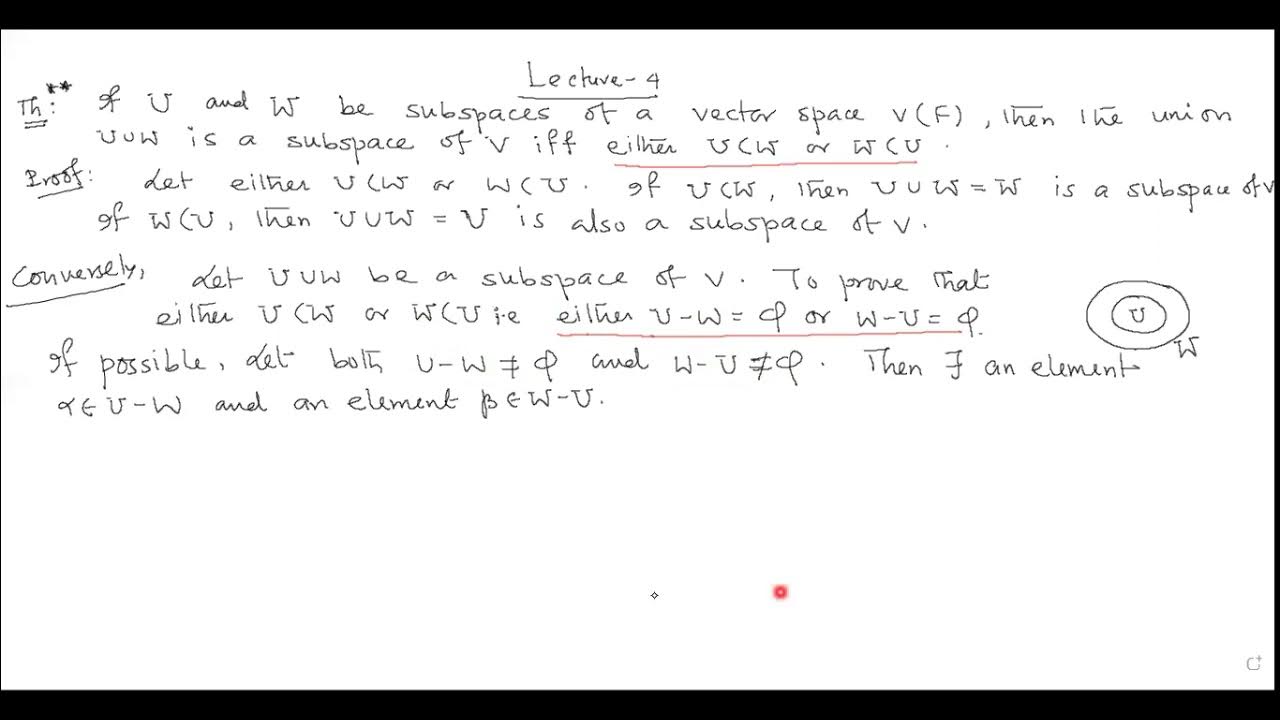 Lecture-4
Th**: If U and W be subspaces of a vector space V(F), then the union
U∪W is a subspace of V iff either U⊂W or W⊂U.
Proof: Let either U⊂W or W⊂U. If U⊂W, then U∪W = W is a subspace of V
If W⊂U, then U∪W = U is also a subspace of V.
Conversely, Let U∪W be a subspace of V. To prove that
either U⊂W or W⊂U i.e either U-W = φ or W-U = φ.
U
W
If possible, Let both U-W ≠ φ and W-U ≠ φ. Then ∃ an element
α∈U-W and an element β∈W-U.